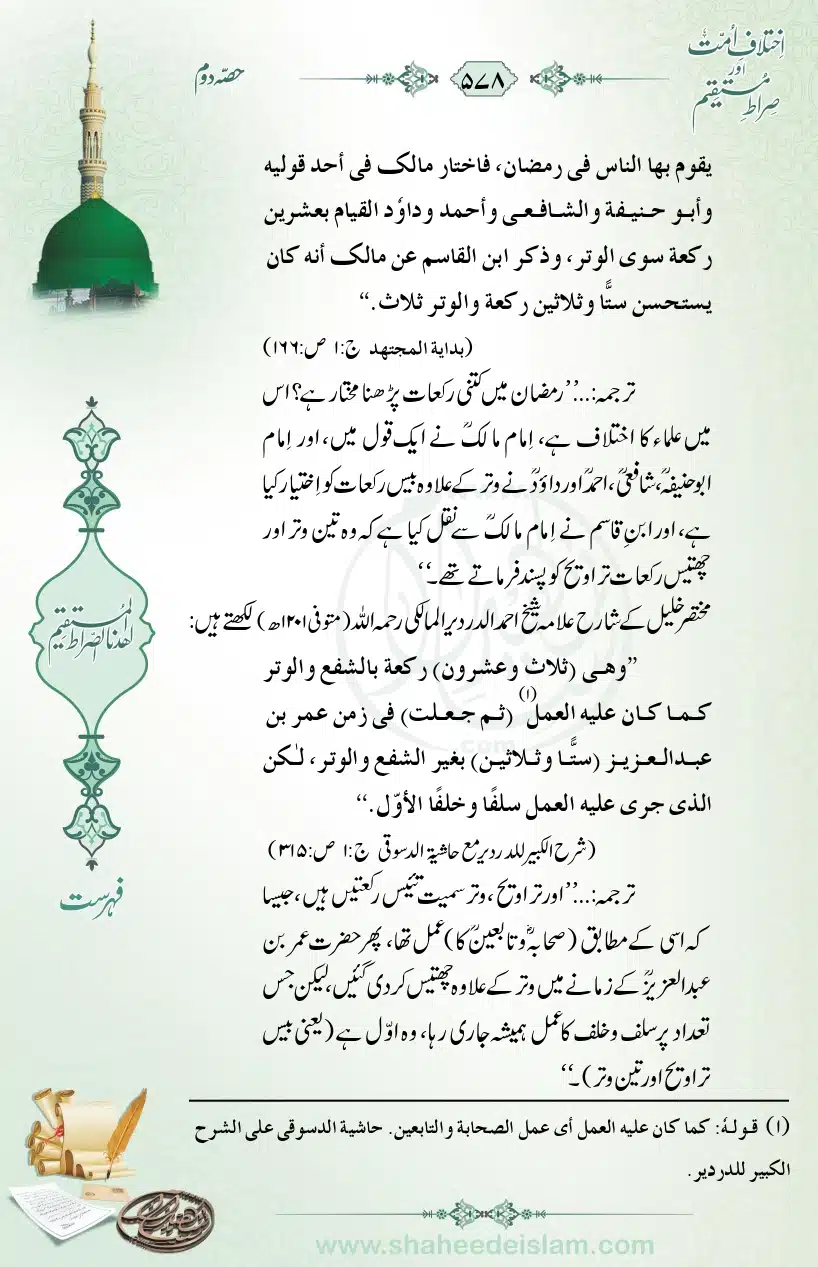 اِختلافِ اُمّت
اور
صِراطِ مُستقیم
۵۷۸
حصّہ دوم
یقوم بها الناس فی رمضان، فاختار مالک فی أحد قولیه
وأبو حنیفة والشافعی وأحمد وداوٗد القیام بعشرین
رکعة سوی الوتر، وذکر ابن القاسم عن مالک أنه کان
یستحسن ستًّا وثلاثین رکعة والوتر ثلاث.“
(بدایة المجتهد ج:۱ ص:۱۶۶)
ترجمہ:...’’رمضان میں کتنی رکعات پڑھنا مختار ہے؟ اس
میں علماء کا اختلاف ہے، اِمام مالکؒ نے ایک قول میں، اور اِمام
ابوحنیفہؒ، شافعیؒ، احمدؒ اور داؤدؒ نے وتر کے علاوہ بیس رکعات کو اِختیار کیا
ہے، اور ابنِ قاسم نے اِمام مالکؒ سے نقل کیا ہے کہ وہ تین وتر اور
چھتیس رکعات تراویح کو پسند فرماتے تھے۔‘‘
مختصر خلیل کے شارح علامہ شیخ احمد الدردیر المالکی رحمہ اللہ (متوفی ۱۲۰۱ھ) لکھتے ہیں:
”وهی (ثلاث وعشرون) رکعة بالشفع والوتر
کما کان علیه العمل(۱) (ثم جعلت) فی زمن عمر بن
عبدالعزیز (ستًّا وثلاثین) بغیر الشفع والوتر، لٰکن
الذی جری علیه العمل سلفًا وخلفًا الأوّل.“
(شرح الکبیر للدردیر مع حاشیۃ الدسوقی ج:۱ ص:۳۱۵)
ترجمہ:...’’اور تراویح، وتر سمیت تئیس رکعتیں ہیں، جیسا
کہ اسی کے مطابق (صحابہؓ وتابعینؒ کا) عمل تھا، پھر حضرت عمر بن
عبدالعزیزؒ کے زمانے میں وتر کے علاوہ چھتیس کردی گئیں، لیکن جس
تعداد پر سلف وخلف کا عمل ہمیشہ جاری رہا، وہ اوّل ہے (یعنی بیس
تراویح اور تین وتر)۔‘‘
(۱) قولہٗ: کما کان علیه العمل أی عمل الصحابة والتابعین. حاشیة الدسوقی علی الشرح
الکبیر للدردیر.
اهدنا الصّراط المُستقیم
فہرست
www.shaheedeislam.com